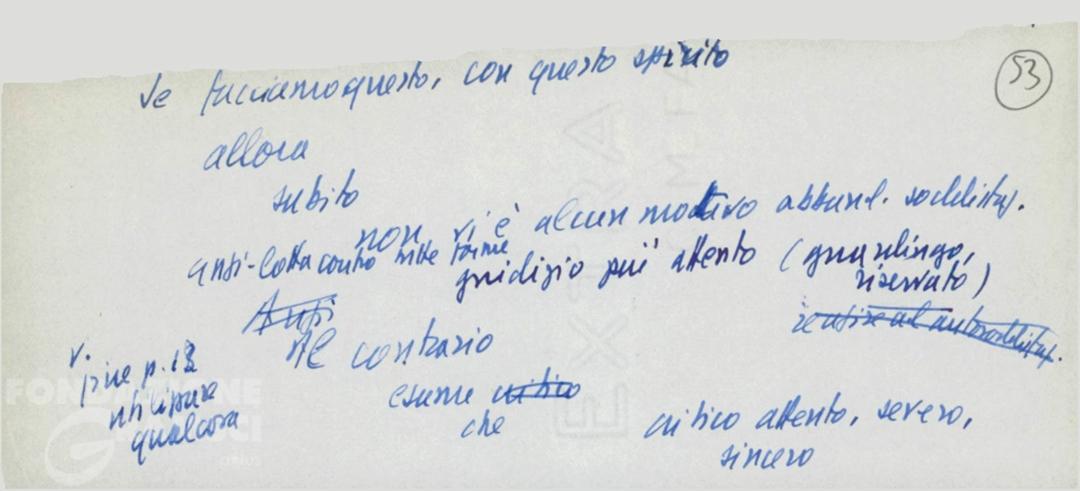 53
Se facciamo questo, con questo spirito
allora
subito
non vi è alcun motivo abband. soddisfaz.
anzi-lotta contro tutte forme
giudizio più attento (guardingo,
riservato)
Anzi
reagire al autosoddisfaz.
Al contrario
v.
fine p. 13
utilizzare
qualcosa
esame critico
che
critico attento, severo,
sincero
FONDAZIONE
GRAMSCI
EXTRA